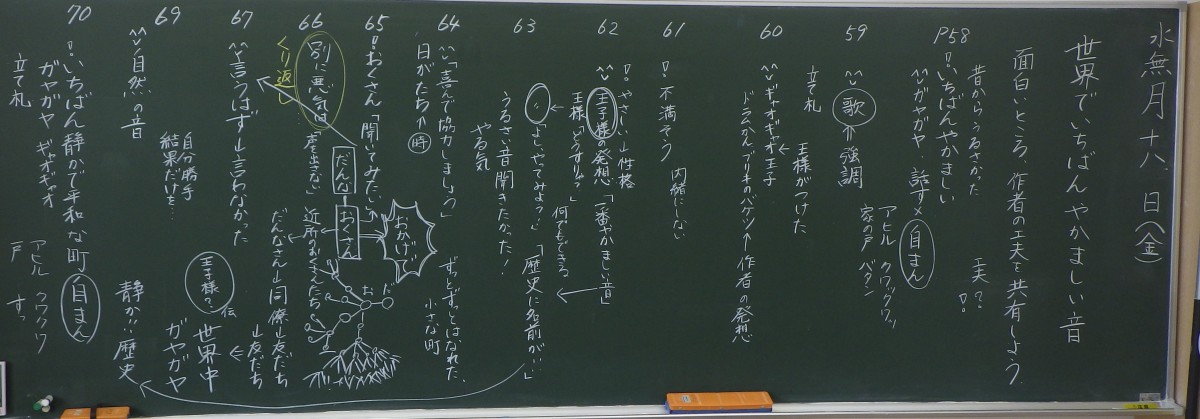 水無月十八日(金)
世界でいちばんやかましい音
面白いところ、作者の工夫を共有しよう
工夫?
昔からうるさかった
P58
いちばんやかましい
ガヤガヤ、話す×
自まん
59
歌
⇐強調
アヒル クワックワッ
家の戸 バタン
60
ギャオギャオ王子
王様がつけた
立て札
ドラムかん、ブリキのバケツ↑作者の発想
61
不満そう
内緒にしない
62
やさしい↓性格
王子様の発想「一番やかましい音」
王様「どうする?」
何でもできる
63
「よし、やってみよう」
「歴史に名前が…」
うるさい音聞きたかった!
やる気
64
「喜んで協力しましょう」
ずっとずっとはなれた、
小さな町
日がたち↑時
65
おくさん「聞いてみたい」
おかげ
だんな
おくさん
だ
お
66
別に悪気は
「声を出さない」
近所のおくさんたち
くり返し
だんなさん↓同僚↓友だち
↓友だち
67
言うはず↓言わなかった
王子様?
伝
世界中
ガヤガヤ
69
自然の音
自分勝手
結果だけを…
静か!!歴史
70
いちばん静かで平和な町
自まん
ガヤガヤ ギャオギャオ
立て札
アヒル クワックワ
戸 すっ